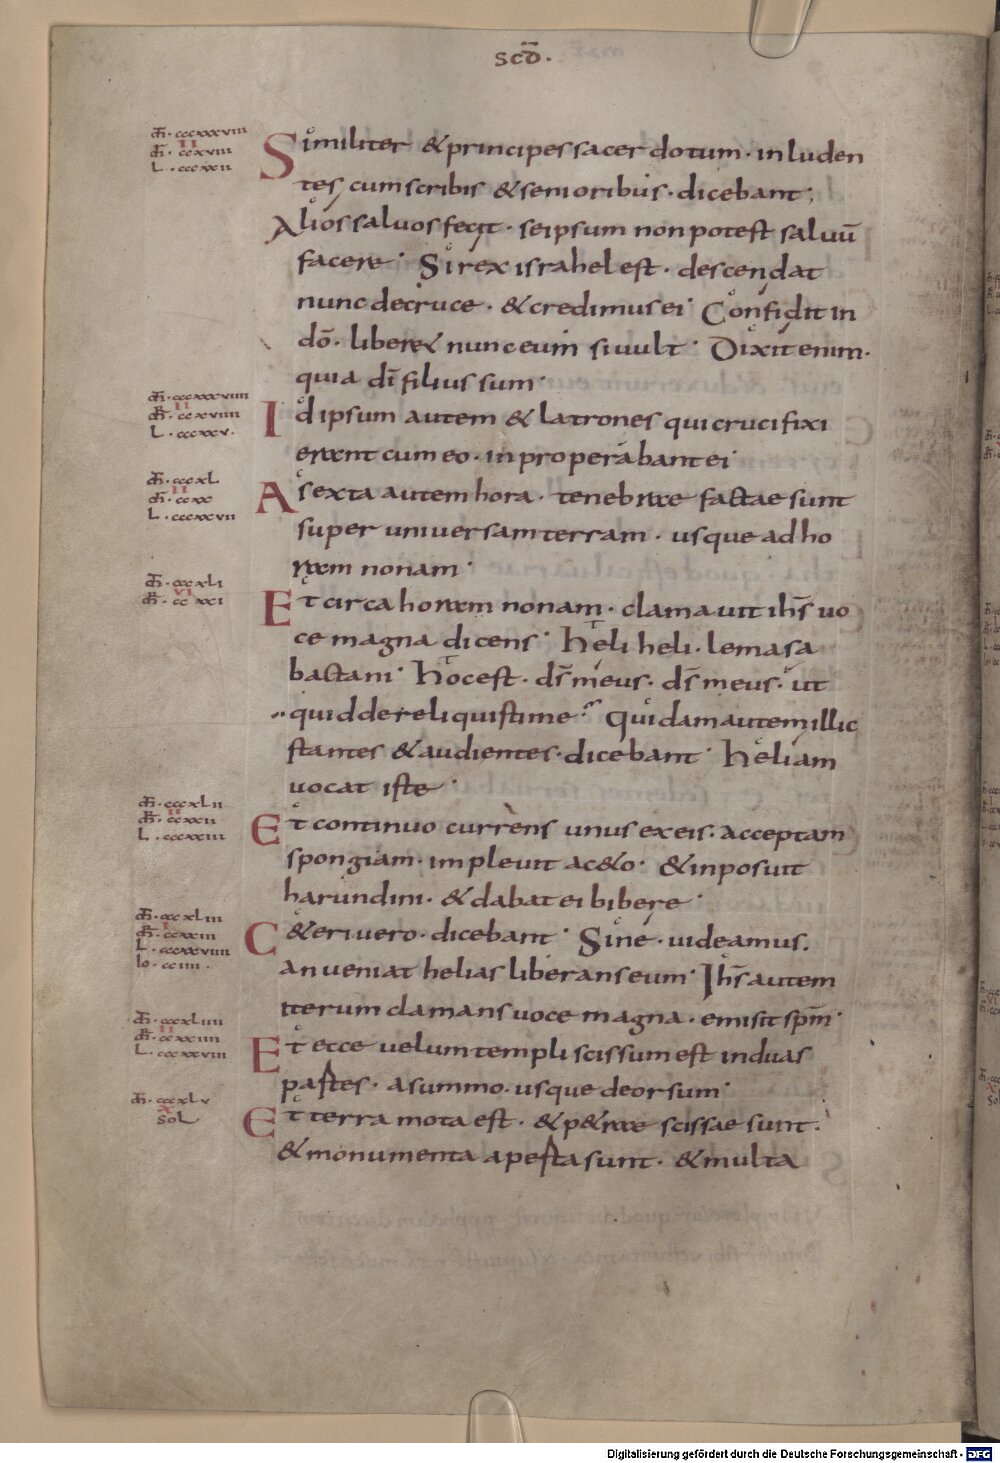 scd̄.
m̄. cccxxxviii
II
m̄r. ccxviii
L. cccxxii
Similiter & principes sacerdotum. inluden
tes cum scribis & senioribus. dicebant;
Alios saluos fecit. seipsum non potest saluū
facere. Si rex israhel est. descendat
nunc de cruce. & credimus ei. Confidit in
dō. liber& nunc eum si uult. Dixit enim.
quia dī filius sum.
m̄. cccxxxviiii
II
m̄r. ccxviiii
L. cccxxv.
Id ipsum autem & latrones qui crucifixi
erant cum eo. inproperabant ei.
m̄. cccxl
II
m̄r. ccxx
L. cccxxvii
A sexta autem hora. tenebrae factae sunt
super uniuersam terram. usque ad ho
ram nonam.
m̄. cccxli
VI
m̄r. ccxxi
Et circa horam nonam. clamauit ih̄s uo
ce magna dicens. heli heli. lemasa
bactani. hoc est. d̄s meus. d̄s meus. ut
quid dereliquisti me. Quidam autem illic
stantes & audientes. dicebant. heliam
uocat iste.
m̄. cccxlii
II
m̄r. ccxxii
L. cccxxiii
Et continuo currens unus ex eis. acceptam
spongiam. impleuit ac&o. & inposuit
harundini. & dabat ei bibere.
m̄. cccxliii
I
m̄r. ccxxiii
L. cccxxviiii
Io. cciiii.
C&eri uero. dicebant. Sine. uideamus.
an ueniat helias liberans eum. Ih̄s autem
iterum clamans uoce magna. emisit sp̄m.
m̄. cccxliiii
II
m̄r. ccxxiiii
L. cccxxviii
Et ecce uelum templi scissum est in duas
partes. a summo. usque deorsum.
m̄. cccxlv
X
SOL
Et terra mota est. & p&rae scissae sunt.
& monumenta aperta sunt. & multa
Digitalisierung gefördert durch die Deutsche Forschungsgemeinschaft - DFG